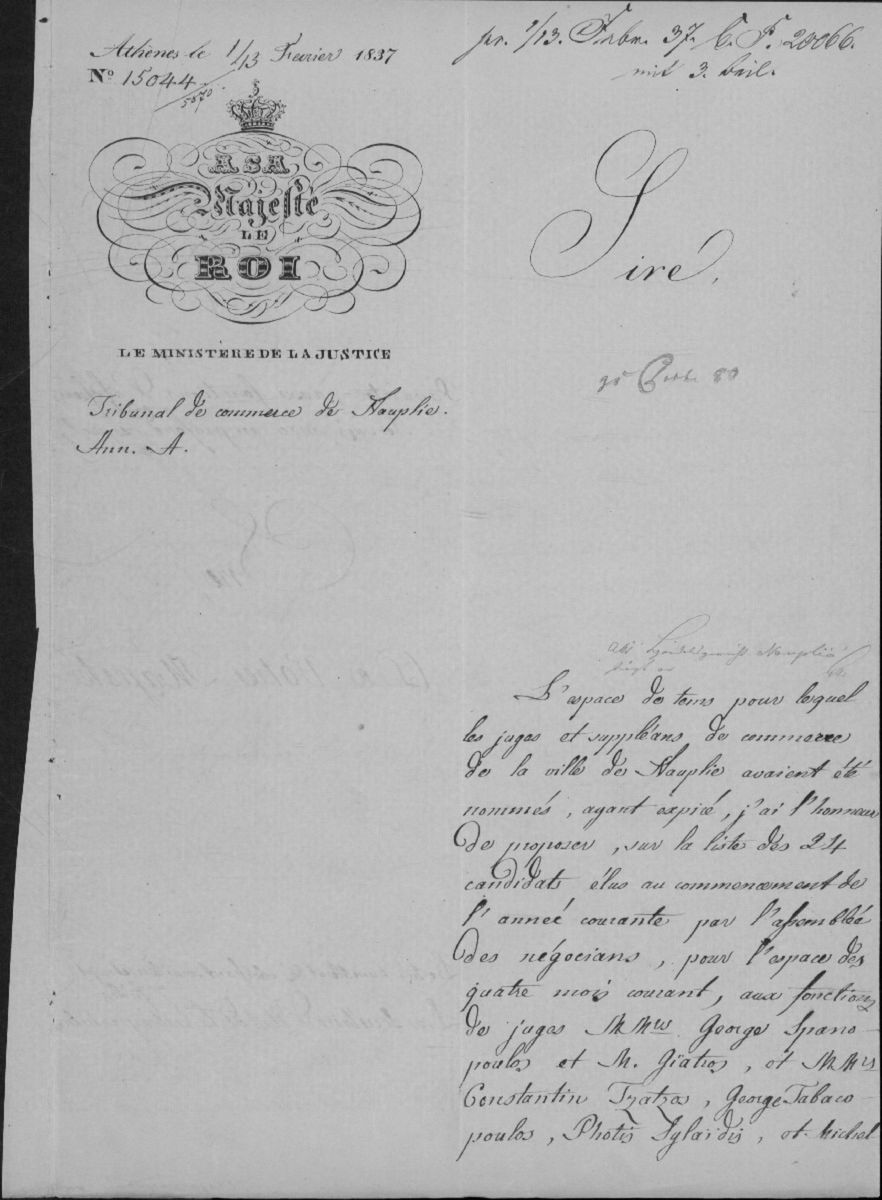 Athènes le 1/13 Fevrier 1837
Nº 15044
5070
pr. 1/13. Febr. 37. C. P. 20066.
mit 3. beil.
A SA
Majesté
LE
ROI
LE MINISTÈRE DE LA JUSTICE
Tribunal de commerce de Nauplie.
Ann. A.
Siré,
L'espace de tems pour lequel
les juges et suppléans de commerce
de la ville de Nauplie avaient été
nommés, ayant expiré, j'ai l'honneur
de proposer, sur la liste des 24
candidats élus au commencement de
l'anneé courante par l'assembleé
des négocians, pour l'espace des
quatre mois courant, aux fonctions
de juges MMrs George Spano-
poulos et M. Giatros, et MMrs
Constantin Tzatzos, George Tabaco-
poulos, Photis Sylaïdis, et Michel